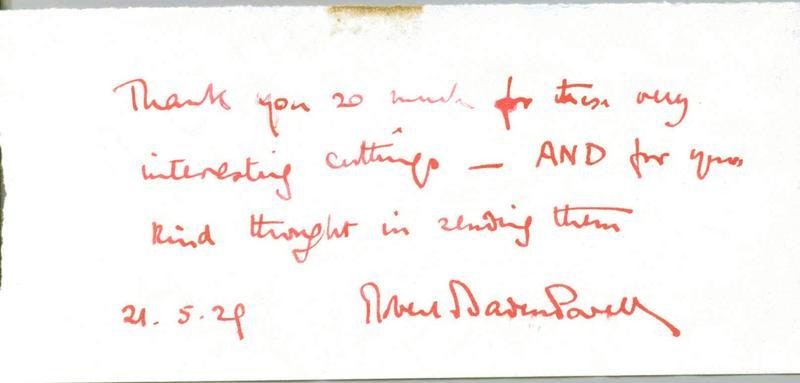 Thank you so much for these very
interesting cuttings — AND for your
kind thought in sending them
21. 5. 29 Robert Baden Powell